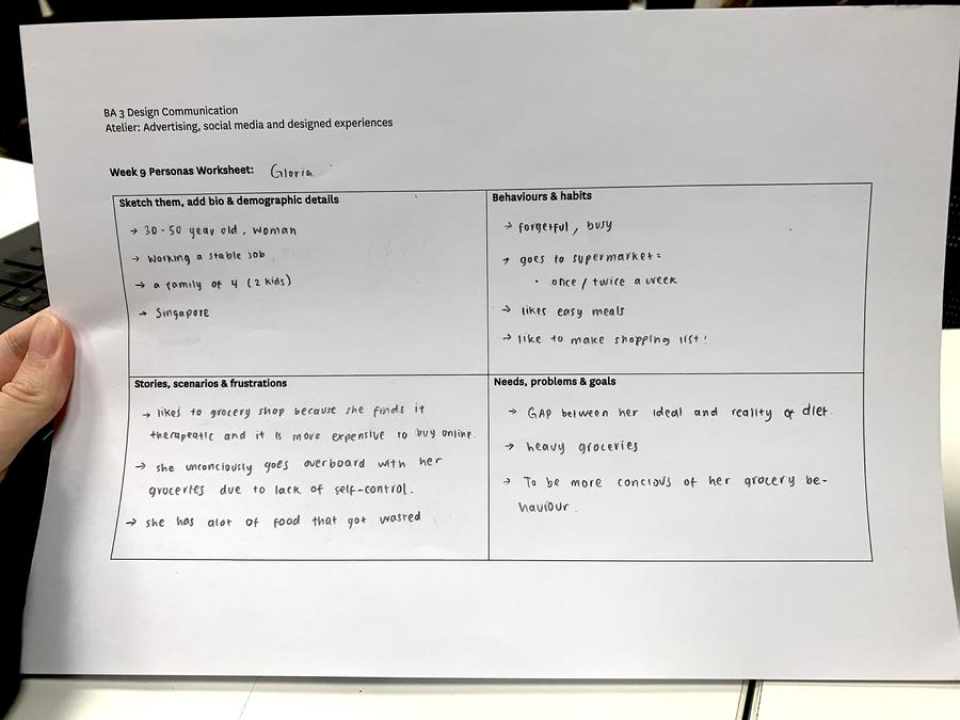 BA 3 Design Communication
Atelier: Advertising, social media and designed experiences
Week 9 Personas Worksheet: Gloria
Sketch them, add bio & demographic details
→ 30-50 year old, woman
→ Working a stable job
→ a family of 4 (2 kids)
→ Singapore
Behaviours & habits
→ forgetful, busy
→ goes to supermarket:
• once / twice a week
→ likes easy meals
→ like to make shopping list!
Stories, scenarios & frustrations
→ likes to grocery shop because she finds it
therapeatic and it is more expensive to buy online.
→ she unconciously goes overboard with her
groceries due to lack of self-control.
→ she has alot of food that got wasted
Needs, problems & goals
→ GAP between her ideal and reality of diet.
→ heavy groceries
→ To be more concious of her grocery be-
haviour.